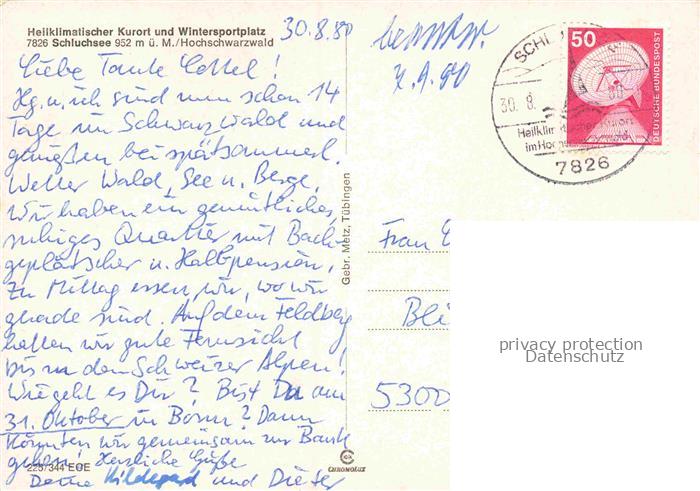 Heilklimatischer Kurort und Wintersportplatz
7826 Schluchsee 952 m ü. M./Hochschwarzwald
30.8.80
Liebe Tante !
Hg. u. ich sind nun schon 14
Tage im Schwarzwald und
genießen bei spätsommerl.
Wetter Wald, See u. Berge.
Wir haben ein gemütliches,
ruhiges Quartier mit Bach-
geplätscher u. Halbpension,
zu Mittag essen, wir, wo wir
gerade sind. Auf dem Feldberg
hatten wir gute Fernsicht
bis zu den Schweizer Alpen!
Wie geht es Dir? Bist Du am
31. Oktober in Bonn? Dann
könnten wir gemeinsam zur Bank
gehen! Herzliche Grüße
Deine Hildegard und Dieter
225/344 ECE
Gebr. Metz, Tübingen
CHROMOLUX
.9.80
SCHL
30.8. 80
Heilklimatischer Kurort
im Hochschwarzwald
7826
50
DEUTSCHE BUNDESPOST
Frau
5300
privacy protection
Datenschutz